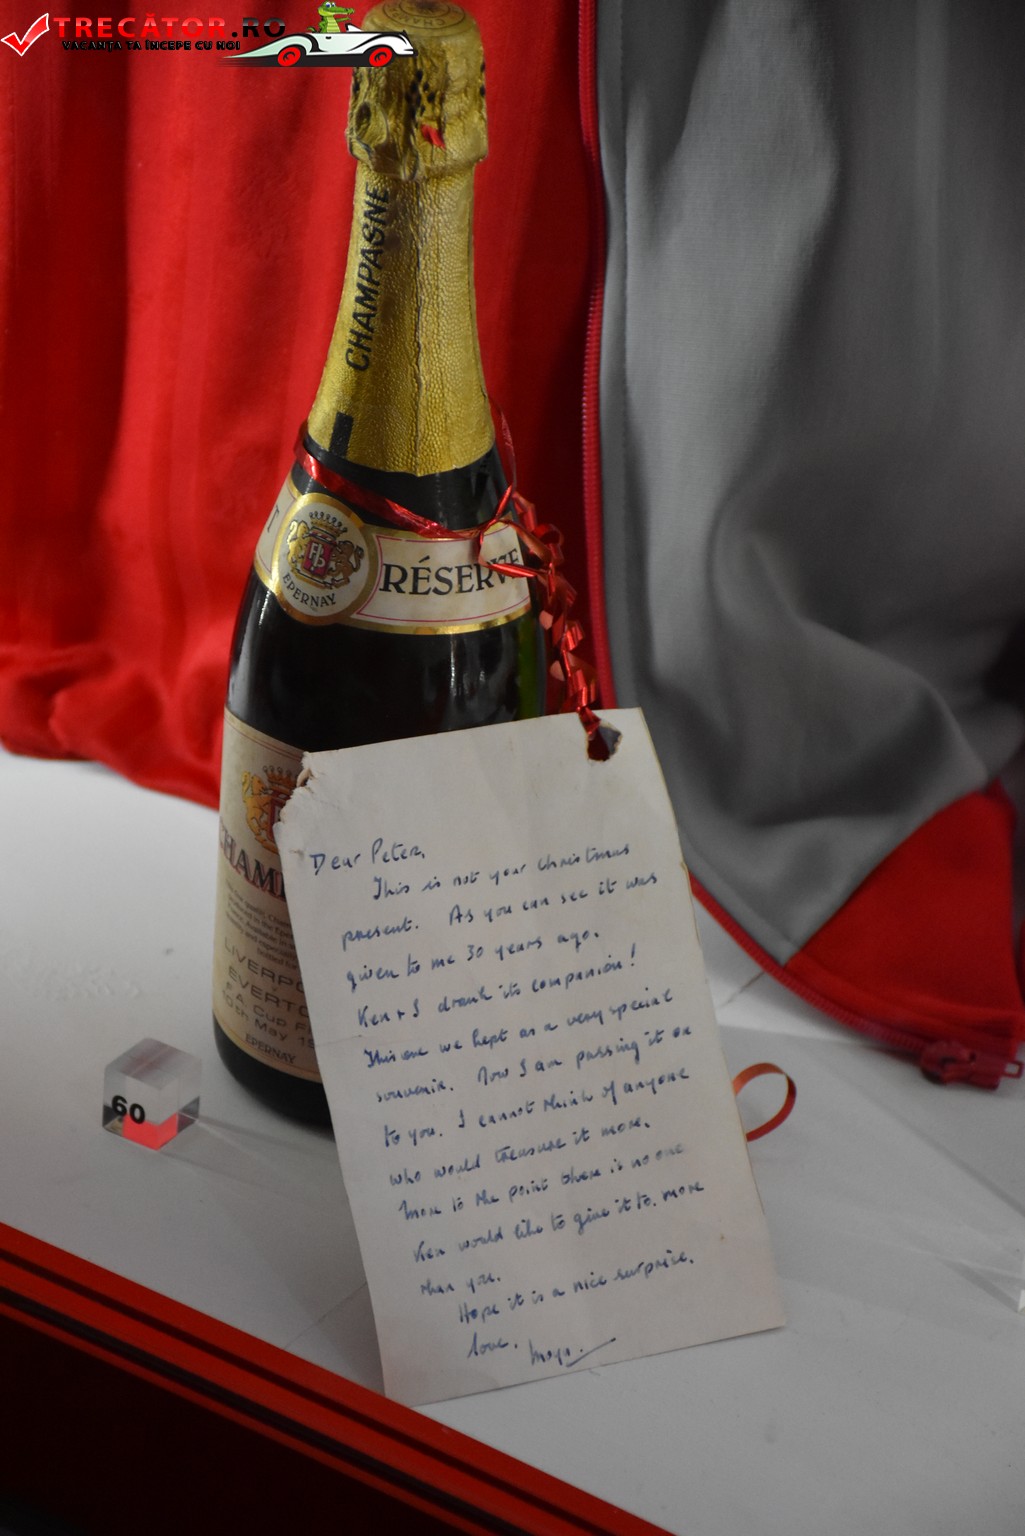 TRECĂTOR.RO
VACANȚA TA ÎNCEPE CU NOI
CHAMPAGNE
RÉSERVE
EPERNAY
CHAMP
LIVERPO
EVERTO
F.A. Cup F
10th May 19
EPERNAY
60
Dear Peter,
This is not your Christmas
present. As you can see it was
given to me 30 years ago.
Ken + I drank its companion!
This one we kept as a very special
souvenir. Now I am passing it on
to you. I cannot think of anyone
who would treasure it more.
More to the point there is no one
Ken would like to give it to. more
than you.
Hope it is a nice surprise.
love.